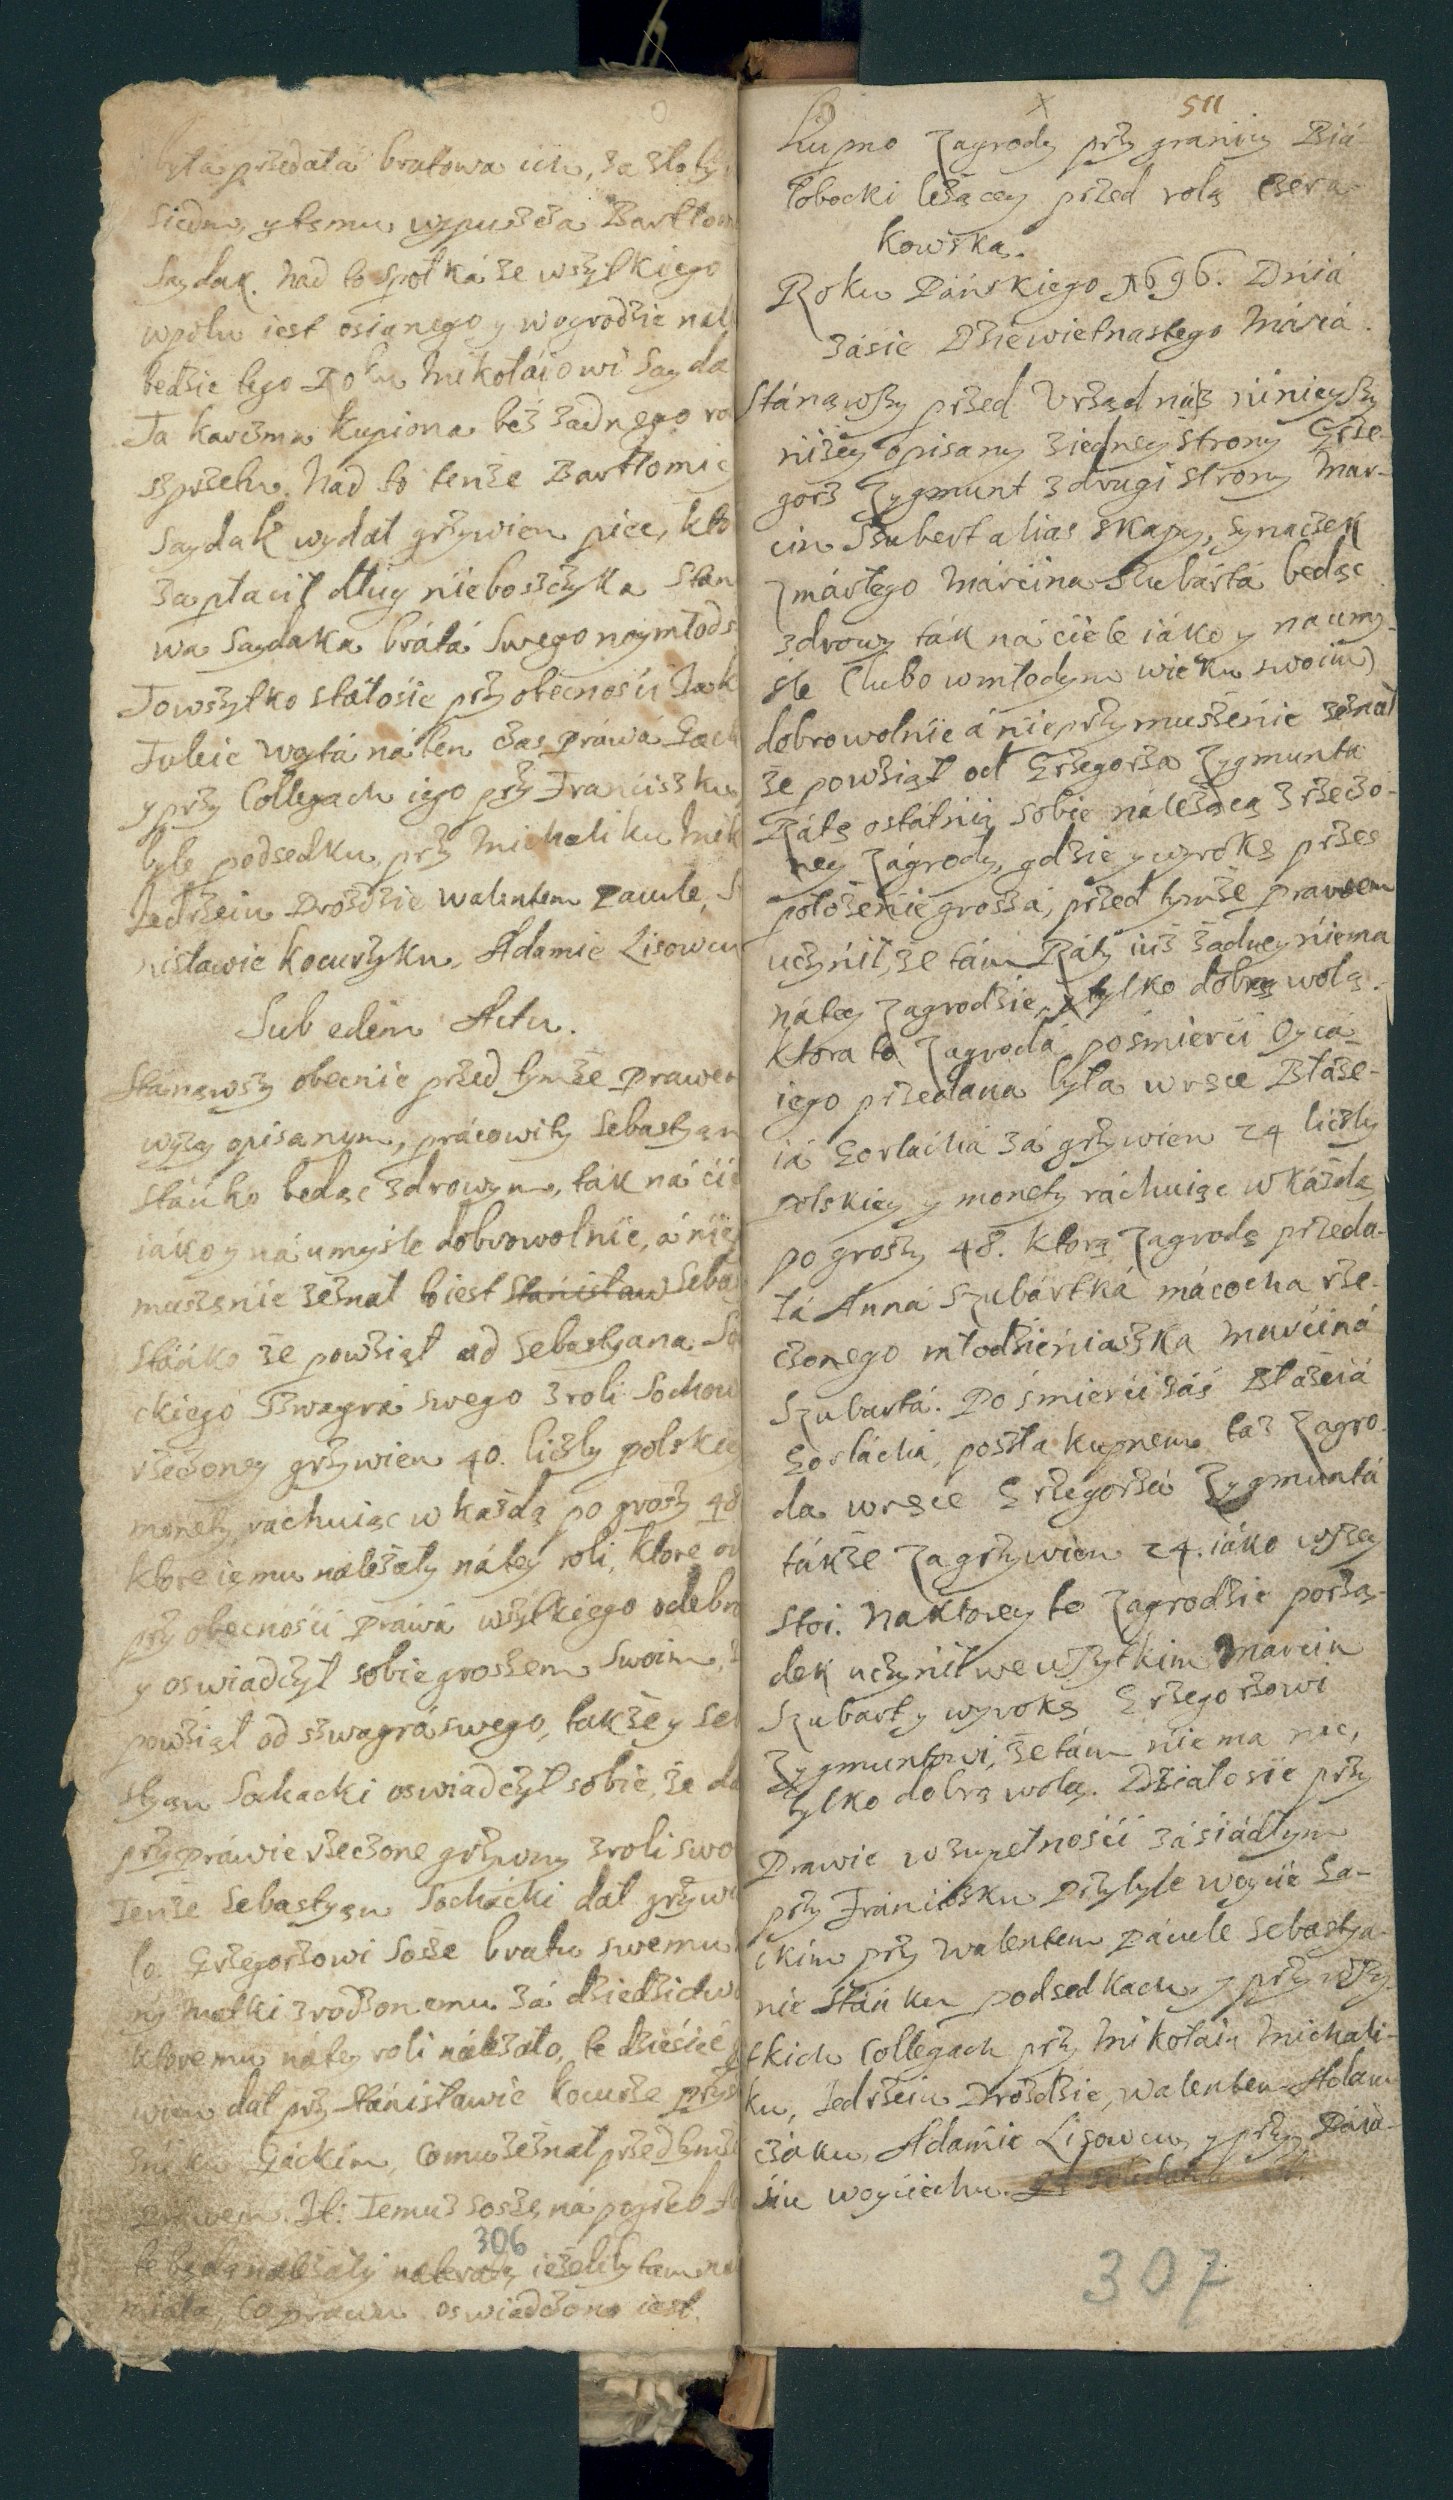 była przedała bratowa ich, za złoty
siedm, y temu wypuszcza Bartłom
Saydak. Nad to spotka że wszytkiego
wpolu iest osianego y wogrodzie nal
bedzie tego Roku Mikołáiowi Sayda
Ta karczma kupiona bez żadnego ro
szprzetu. Nad to tenże Bartłomie
Saydak wydał grzywien piec, kto
zapłacił dług nieboszczyka Stan
wa Saydaka brátá swego naymłods
To wszytko státosie przy obecnosci Jak
Tuleie woytá ná ten czas práwá Gack
y przy Collegach iego przy Franciszku
byle podsedku, przy Michaliku Mik
Jedrzeiu Drozdzie Walentem Pawle, S
nisławie Kocurzyku, Adamie Lisowcu
Sub edem Actu.
Stánąwszy obecnie przed tymże Prawem
wyzey opisanym, prácowity Sebastyan
Stáńko bedąc zdrowym, ták ná cie
iáko y ná umyśle dobrowolnie, á nie
muszenie zeznał to iest Stánisław Seba
Stáńko że powziął od Sebastyana So
ckiego Szwagrá swego z roli Sochow
rzeczoney grzywien 40. liczby polskiey
monety rachuiąc w kazdą po groszy 48
ktore iemu nalezały ná tey roli, ktore on
przy obecnosci Prawá wszytkiego odebra
y oswiadczył sobie groszem swoim,
powziął od szwagrá swego, takze y Seb
styan Sochacki oswiadczył sobie, że da
przy práwie rzeczone grzywny z roli swo
Tenże Sebastyan Sochacki dał grzyw
to. Grzegorzowi Sosze bratu swemu
ny matki zrodzonemu zá dziedzictwo
ktoremu ná tey roli nálezáło, te dziesieć
wien dał przy Stánisławie Kocurze przys
zniku Gáckim, comu zeznał przed tymże
Prawem. It: Temuz Sosze ná pogrzeb
306
te będą nalezały iezeliby tam
miała, co prawu oswiadczono iest.
511
Kupno Zagrody przy granicy Biá
łobocki lezącey przed rolą Czera
kowską.
Roku Páńskiego 1696. Dniá
zásie Dziewietnastego Máiá.
Stánąwszy przed Vrząd nász ninieyszy
niżey opisany ziedney strony Grze-
gorz Zygmunt z drugi strony Mar-
cin Szubert alias Skapy, synaczek
Zmárłego Márciná Szubártá bedąc
zdrowy ták ná ciele iáko y na umy-
śle (lubo w młodym wieku swoim)
dobrowolnie á nieprzymuszenie zeznał
że powziął od Grzegorza Zygmunta
Ráte ostátnią sobie nálezącą z rzeczo-
ney Zágrody, gdzie y wyrokę przez
położenie groszá, przed tymże prawem
uczynił, że tám Ráty iuż żadney niema
ná tey Zagrodzie, tylko dobrą wolą.
Ktora to Zagroda po śmierci Oycá
iego przedana była w rece Błáze-
iá Gorlachá zá grzywien 24 liczby
polskiey y monety ráchuiąc w káżdą
po groszy 48. Ktorą Zagrodę przeda-
łá Anná Szubártká mácocha rze-
czonego młodzieniaszka Márciná
Szubartá. Po śmierci záś Błázeiá
Gorlachá, poszła kupnem taż Zagro-
da w rece Grzegorzá Zygmuntá
tákże Zagrzywien 24. iáko wyżey
stoi. Na ktorey to Zagrodzie porzą-
dek uczynił we wszytkim Marcin
Szubart y wyrokę Grzegorzowi
Zygmuntowi, że tám nie ma nic,
tylko dobrą wolą. Działo sie przy
Prawie w zupełnosci zásiádłym
przy Fránciszku Przybyle woycie Ga-
ckim przy Walentem Páwle Sebastya-
nie Stáńku podsedkach, y przy wszy-
tkich Collegach przy Mikołáiu Michali-
ku, Jedrzeiu Drozdzie, Walentem Adam
czáku, Adamie Lisowcu, y przy
woyciechu.
307